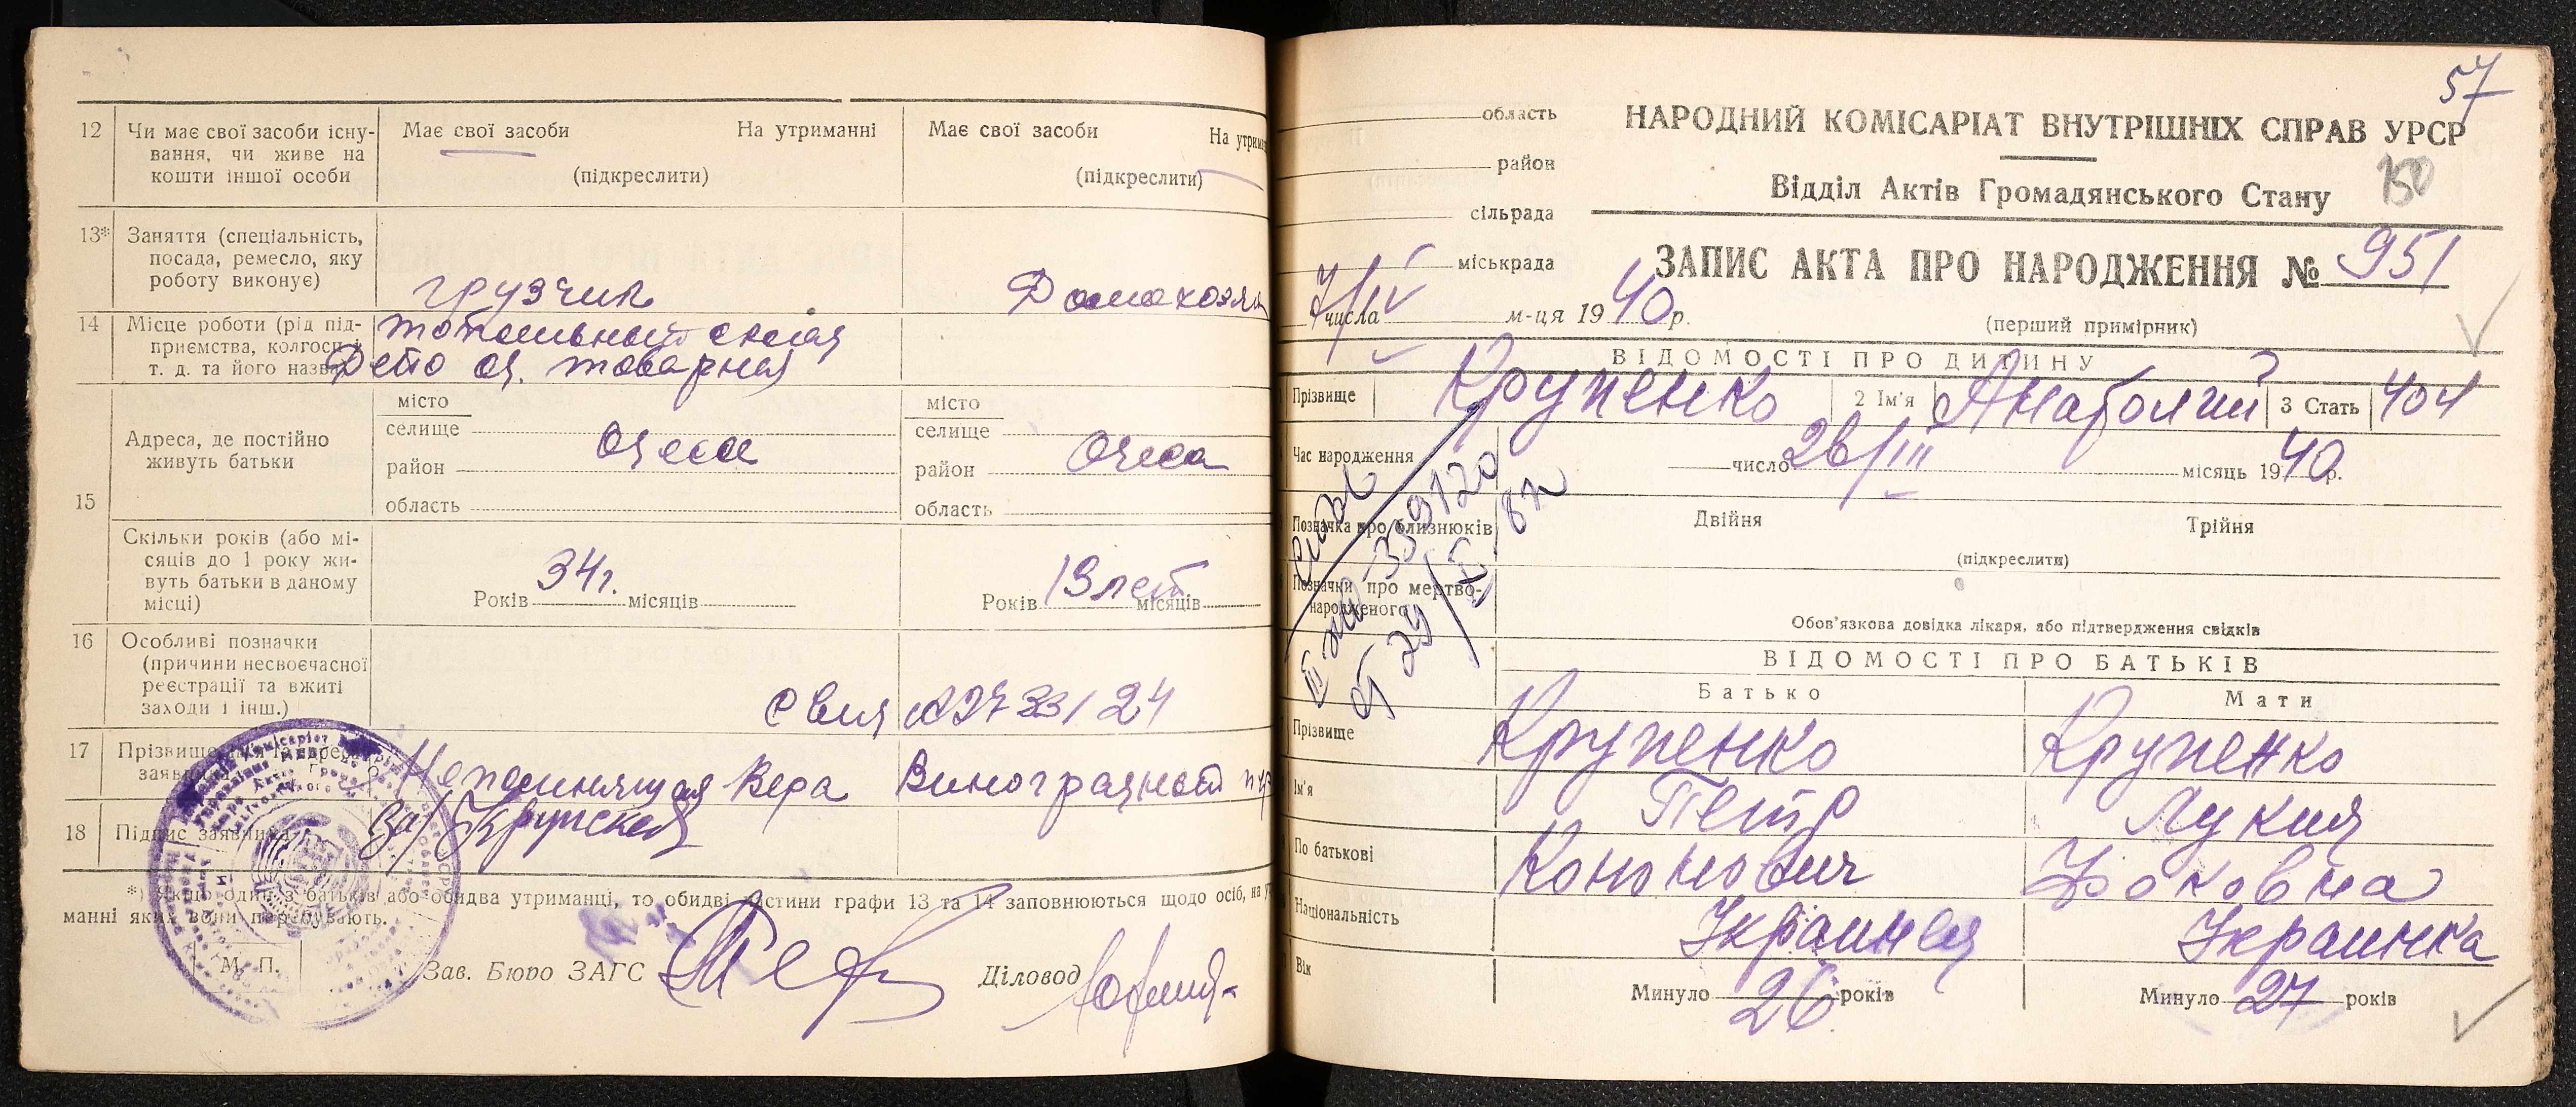 12 Чи має свої засоби існу-
вання, чи живе на
кошти іншої особи
Має свої засоби На утриманні
(підкреслити)
Має свої засоби На утрим
(підкреслити)
13* Заняття (спеціальність,
посада, ремесло, яку
роботу виконує)
грузчик
Домохозяй
14 Місце роботи (рід під-
приємства, колгосп і
т. д. та його назва)
топливный склад
Депо од. товарная
15 Адреса, де постійно
живуть батьки
місто
селище
район Одесса
область
місто
селище
район Одеса
область
Скільки років (або мі-
сяців до 1 року жи-
вуть батьки в даному
місці)
Років 34г. місяців
Років 13 лет місяців
16 Особливі позначки
(причини несвоєчасної
реєстрації та вжиті
заходи і інш.)
17 Прізвище, ім'я та адреса
заявника
Непомнящая Вера Виноградный
18 Підпис заявника
*) Якщо один з батьків або обидва утриманці, то обидві частини графи 13 та 14 заповнюються щодо осіб, на у
манні яких вони перебувають.
М. П.
Зав. Бюро ЗАГС
Діловод
57
область
район
сільрада
міськрада
7/IV числа м-ця 1940 р.
НАРОДНИЙ КОМІСАРІАТ ВНУТРІШНІХ СПРАВ УРСР
Відділ Актів Громадянського Стану
150
ЗАПИС АКТА ПРО НАРОДЖЕННЯ № 951
(перший примірник)
ВІДОМОСТІ ПРО ДИТИНУ
Прізвище Крупенко 2 Ім'я Анатолий 3 Стать чол
Час народження
число 26/III місяць 1940 р.
Позначка про близнюків
Двійня Трійня
(підкреслити)
Позначки про мертво-
народженого
Обов'язкова довідка лікаря, або підтвердження свідків
ВІДОМОСТІ ПРО БАТЬКІВ
Батько Мати
Прізвище Крупенко Крупенко
Ім'я Петр Лукия
По батькові Кононович Фоковна
Національність Украинец Украинка
Вік Минуло 26 років Минуло 27 років